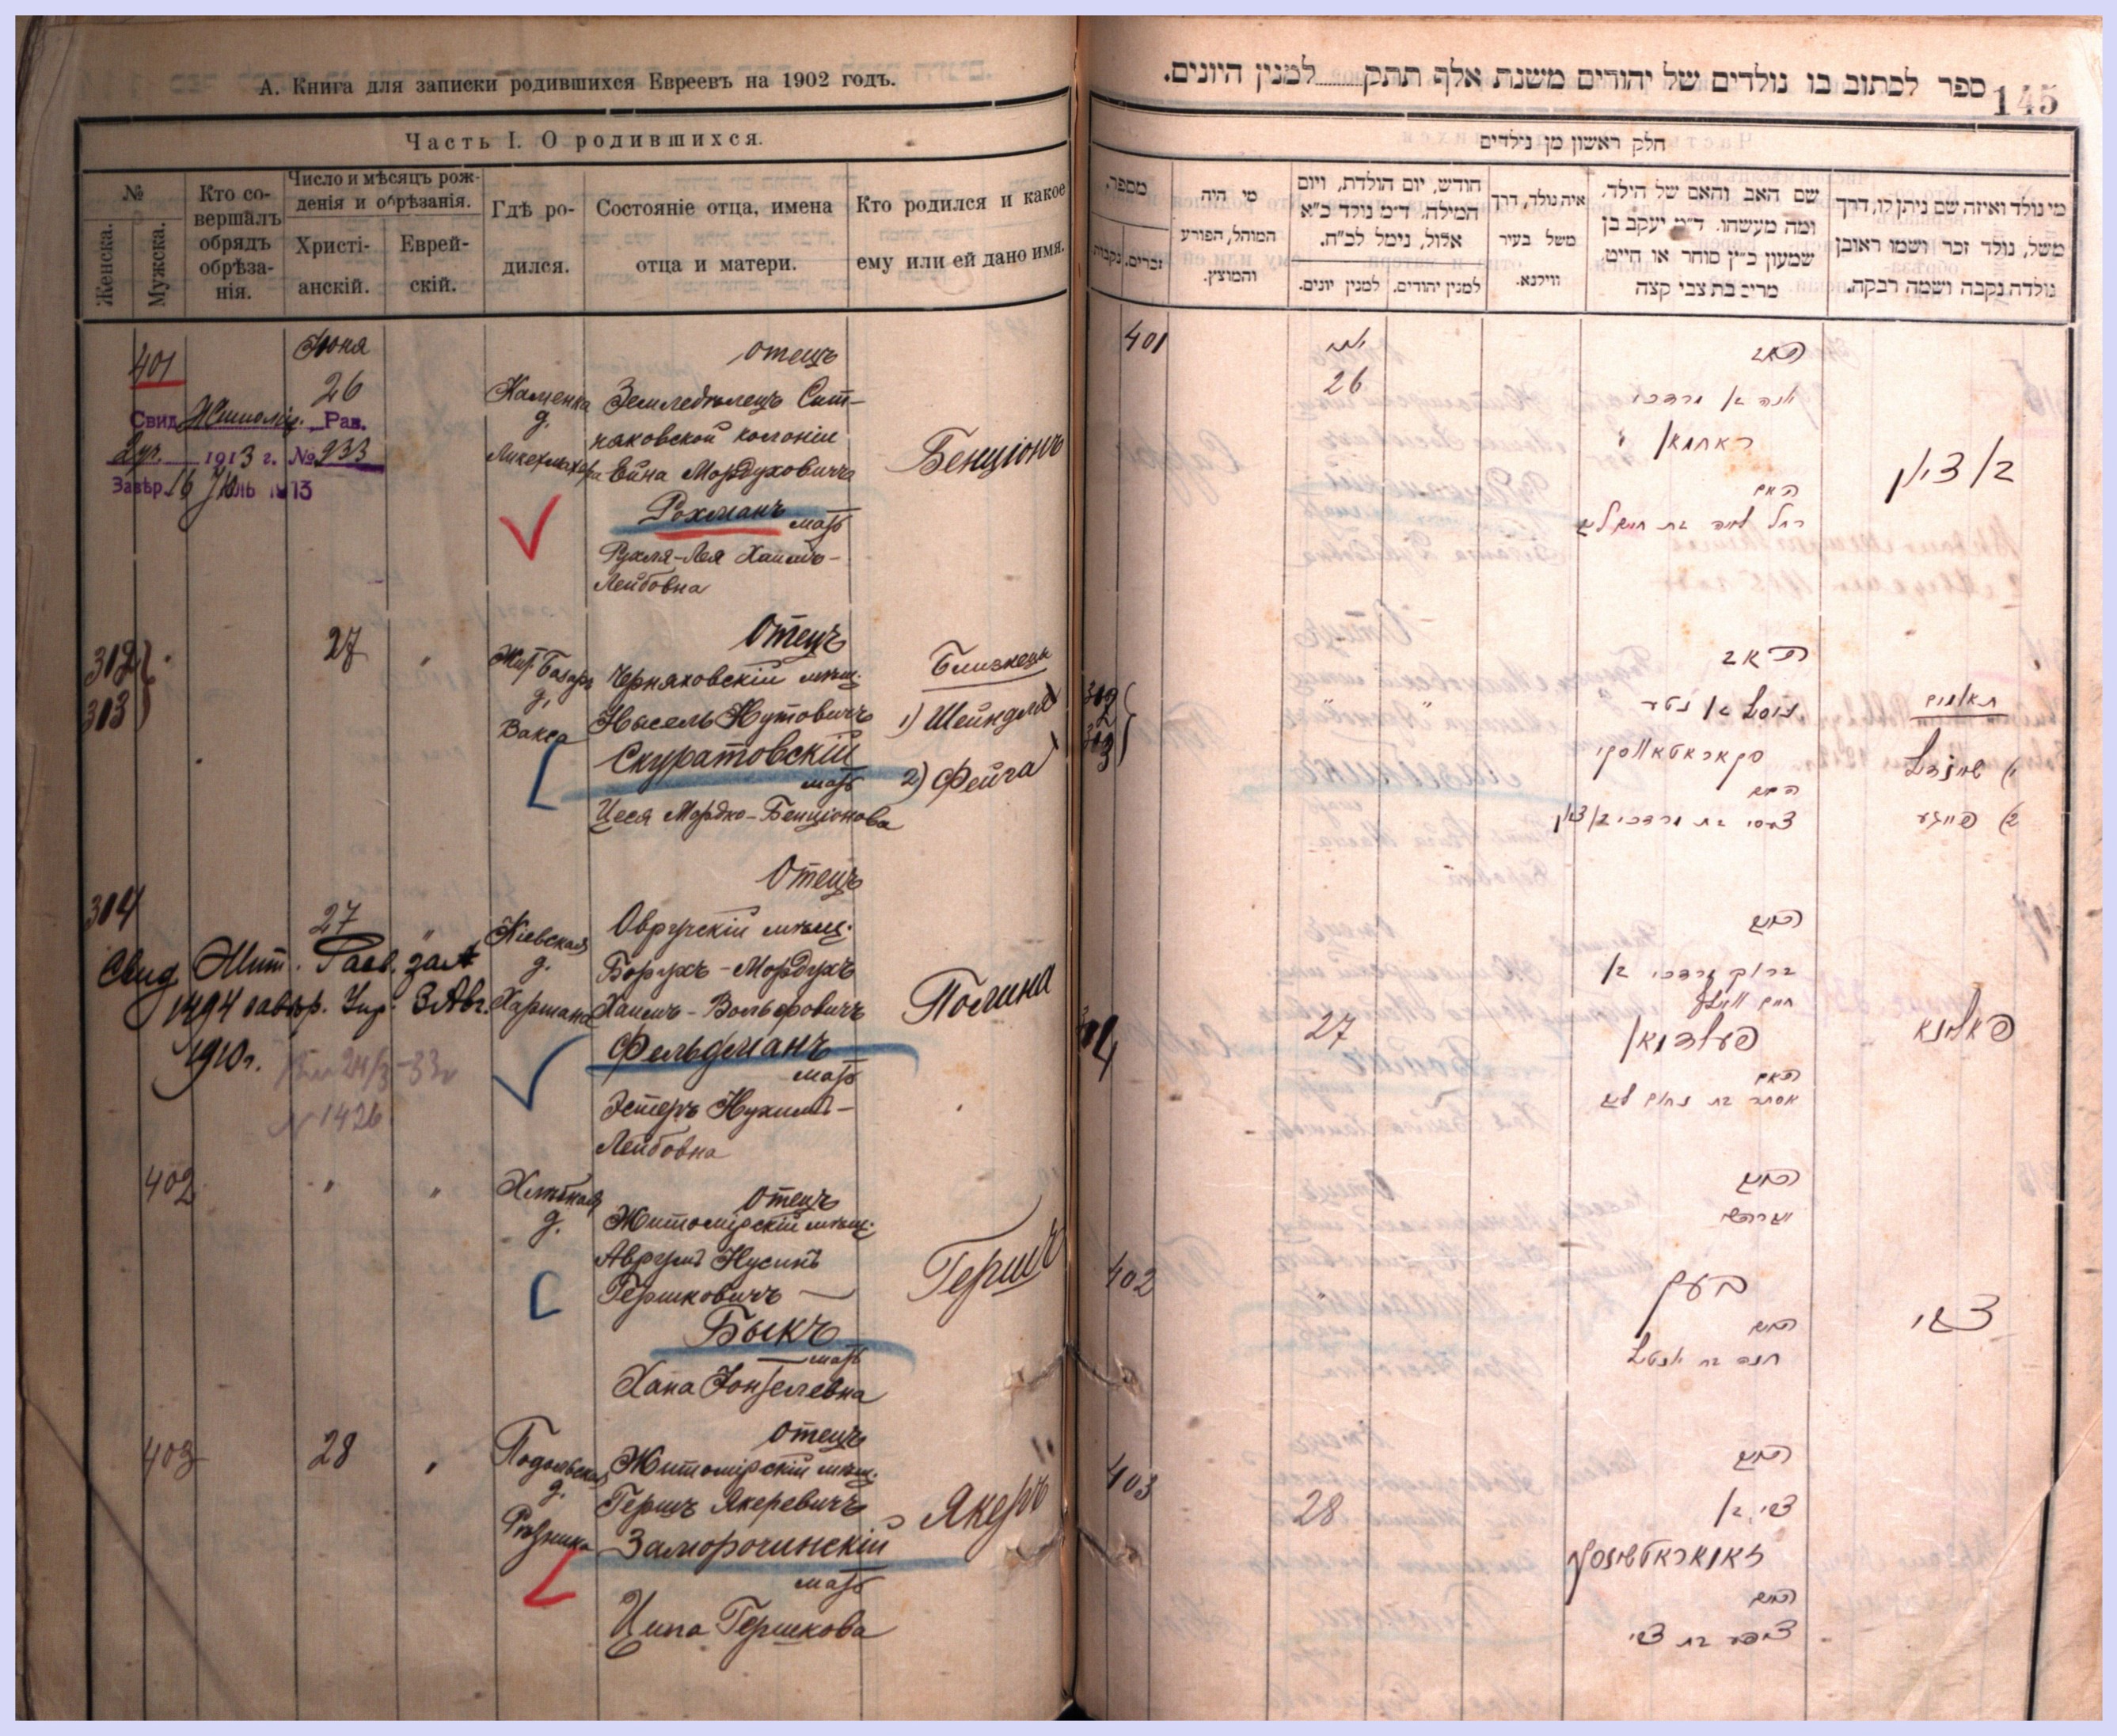 А. Книга для записки родившихся Евреевъ на 1902 годъ.
Часть I. О родившихся.
№
Женска.
Мужска.
Кто со-
вершалъ
обрядъ
обрѣза-
нія.
Число и мѣсяцъ рож-
денія и обрѣзанія.
Христі-
анскій.
Еврей-
скій.
Гдѣ ро-
дился.
Состояніе отца, имена
отца и матери.
Кто родился и какое
ему или ей дано имя.
401
Июня
26
Свид. Житомір. Рав.
1913 г. № 933
Завѣр. 16 Юль 1913
Каменка
д.
отецъ
Земледѣлецъ Сит-
няковской колоніи
Ейна Мордуховичъ
Рохманъ
мать
Рухля-Лея Хаимъ-
Лейбовна
Бенціонъ
312
313
27
Жит. Базаръ
д.
Вакса
Отецъ
Черняховскій мѣщ.
Нысель Нутовичъ
Скуратовскій
мать
Цеся Мордко-Бенціонова
Близнецы
1) Шейндля
2) Фейга
314
27
Свид Жит. Раев. за №
1494 завѣр. Упр. 3 Авг.
1910 г.
24/3-33
№ 1426
Кіевская
д.
Хартана
Отецъ
Овручскій мѣщ.
Борухъ-Мордухъ
Хаимъ-Вольфовичъ
Фельдманъ
мать
Эстеръ Нухимъ-
Лейбовна
Полина
402
"
"
Хлѣбная
д.
Отецъ
Житомірскій мѣщ.
Аврумъ Нусинъ
Гершковичъ
Быкъ
мать
Хана Іонтелевна
Гершъ
403
28
"
Подольская
д.
Рѣзника
Отецъ
Житомірскій мѣщ.
Гершъ Якеревичъ
Заморочинскій
мать
Ципа Гершкова
Якеръ
145
ספר לכתוב בו נולדים של יהודים משנת אלף תתק......למנין היונים.
חלק ראשון מן נולדים
מספר.
זכרים.
נקבות
מי היה
המוהל, הפורע
והמוצץ.
חודש, יום הולדת, ויום
המילה. ד״מ נולד כ״א
אלול, נימל לכ״ח.
למנין יונים.
למנין יהודים.
איה נולד, דרך
משל בעיר
ווילנא.
שם האב והאם של הילד.
ומה מעשהו. ד״מ יעקב בן
שמעון כ״ץ סוחר או חייט.
מרים בת צבי קצה
מי נולד ואיזה שם ניתן לו, דרך
משל, נולד זכר ושמו ראובן
נולדה נקבה ושמה רבקה.
401
יוני
26
האב
בן מרדכי
ראחמאן
האם
רחל לאה בת
בן ציון
312
313
"
"
האב
ניסל בן נטע
סקאראטאווסקי
האם
צעסי בת מרדכי בן ציון
תאומים
1) שיינדל
2) פייגע
314
27
האב
ברוך מרדכי בן
חיים וואלף
פעלדמאן
האם
אסתר בת נחום ליב
פאלינא
402
"
האב
האם
חנה בת יאנטל
צבי
403
28
האב
צבי בן
זאמאראטשינסקי
האם
ציפע בת צבי